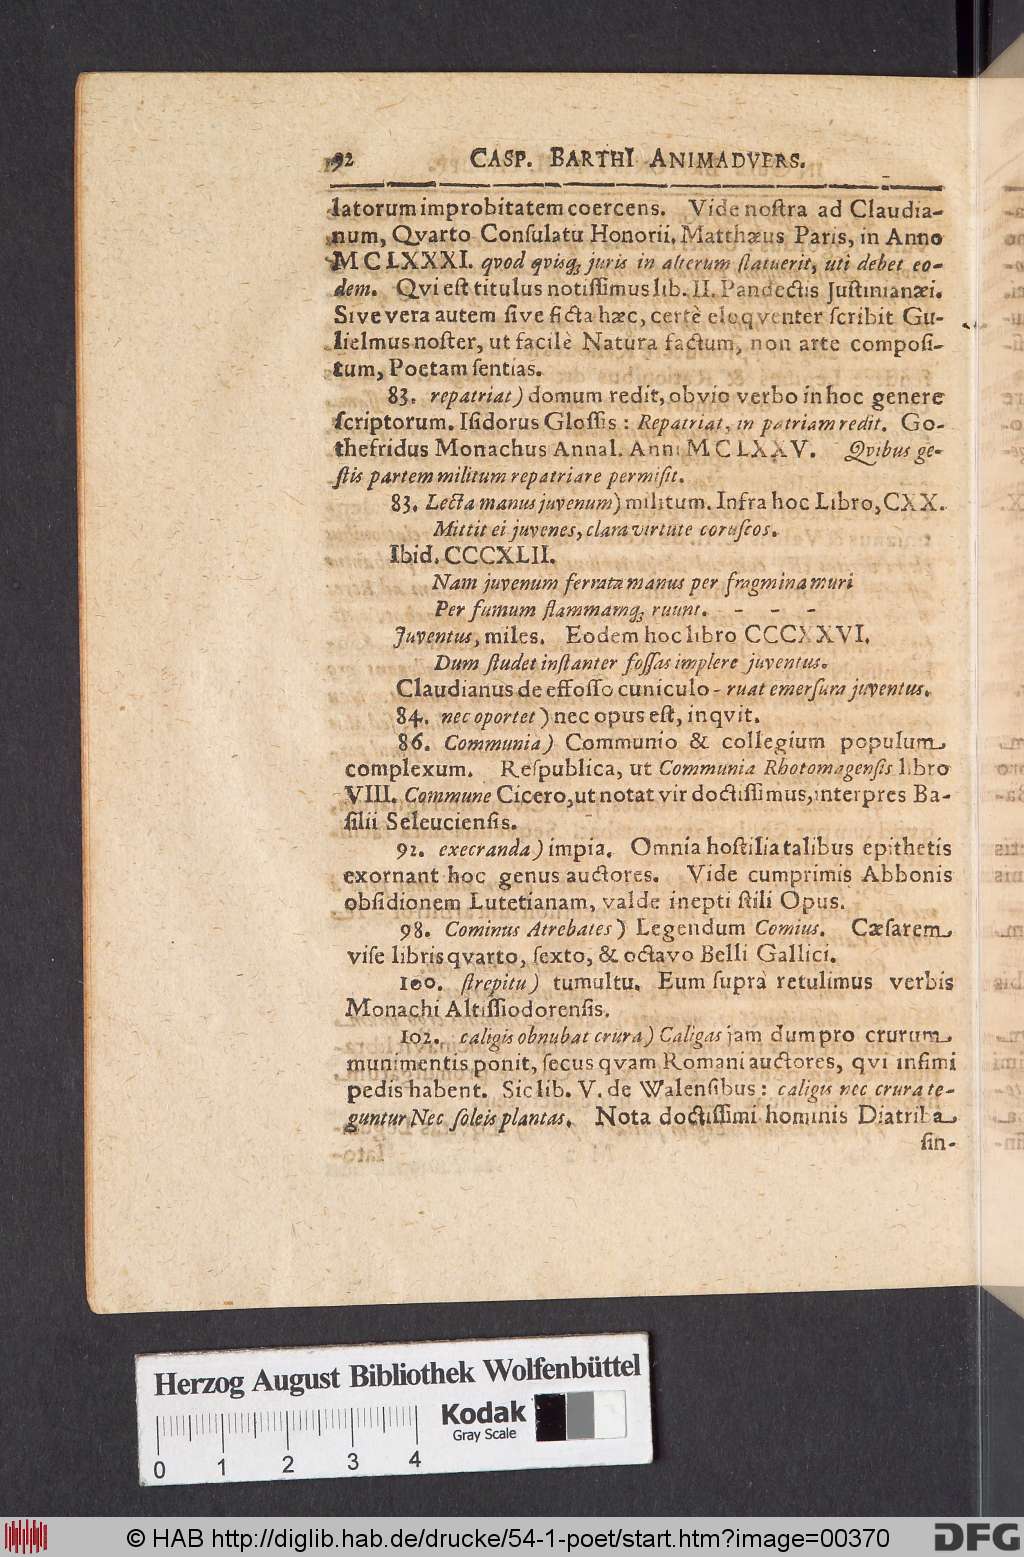 92 CASP. BARTHI ANIMADVERS.
latorum improbitatem coercens. Vide nostra ad Claudia-
num, Qvarto Consulatu Honorii. Matthæus Paris, in Anno
MCLXXXI. qvod qvisq; juris in alterum statuerit, uti debet eo-
dem. Qvi est titulus notissimus lib. II. Pandectis Justinianæi.
Sive vera autem sive ficta hæc, certè eloqventer scribit Gu-
lielmus noster, ut facilè Natura factum, non arte composi-
tum, Poetam sentias.
83. repatriat) domum redit, obvio verbo in hoc genere
scriptorum. Isidorus Glossis: Repatriat, in patriam redit. Go-
thefridus Monachus Annal. Ann: MCLXXV. Qvibus ge-
stis partem militum repatriare permisit.
83. Lecta manus juvenum) militum. Infra hoc Libro, CXX.
Mittit ei juvenes, clara virtute coruscos.
Ibid. CCCXLII.
Nam juvenum ferrata manus per fragmina muri
Per fumum flammamq; ruunt. - - -
Juventus, miles. Eodem hoc libro CCCXXVI.
Dum studet instanter fossas implere juventus.
Claudianus de effosso cuniculo - ruat emersura juventus.
84. nec oportet) nec opus est, inqvit.
86. Communia) Communio & collegium populum
complexum. Respublica, ut Communia Rhotomagensis libro
VIII. Commune Cicero, ut notat vir doctissimus, interpres Ba-
silii Seleuciensis.
92. execranda) impia. Omnia hostilia talibus epithetis
exornant hoc genus auctores. Vide cumprimis Abbonis
obsidionem Lutetianam, valde inepti stili Opus.
98. Cominus Atrebates) Legendum Comius. Cæsarem
vise libris qvarto, sexto, & octavo Belli Gallici.
100. strepitu) tumultu. Eum suprà retulimus verbis
Monachi Altissiodorensis.
102. caligis obnubat crura) Caligas jam dum pro crurum
munimentis ponit, secus qvam Romani auctores, qvi infimi
pedis habent. Sic lib. V. de Walensibus: caligis nec crura te-
guntur Nec soleis plantas. Nota doctissimi hominis Diatriba
sin-
Herzog August Bibliothek Wolfenbüttel
Kodak
Gray Scale
0 1 2 3 4
© HAB http://diglib.hab.de/drucke/54-1-poet/start.htm?image=00370
DFG